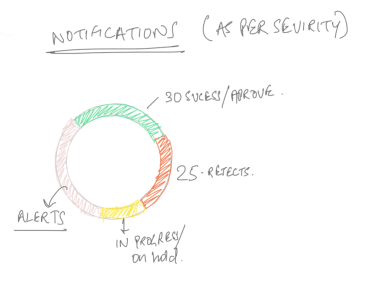 NOTIFICATIONS (AS PER SEVIRITY)
30 SUCESS/APPROVE.
25-REJECTS.
ALERTS
IN PROGRESS/
on hold.